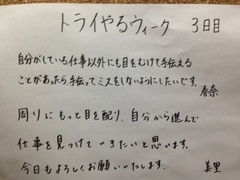 トライやるウィーク 3日目
自分がしている仕事以外にも目をむけて手伝える
ことがあったら、手伝ってミスをしないようにしたいです。
春奈
周りにもっと目を配り、自分から進んで
仕事を見つけていきたいと思います。
今日もよろしくお願いいたします。
美里